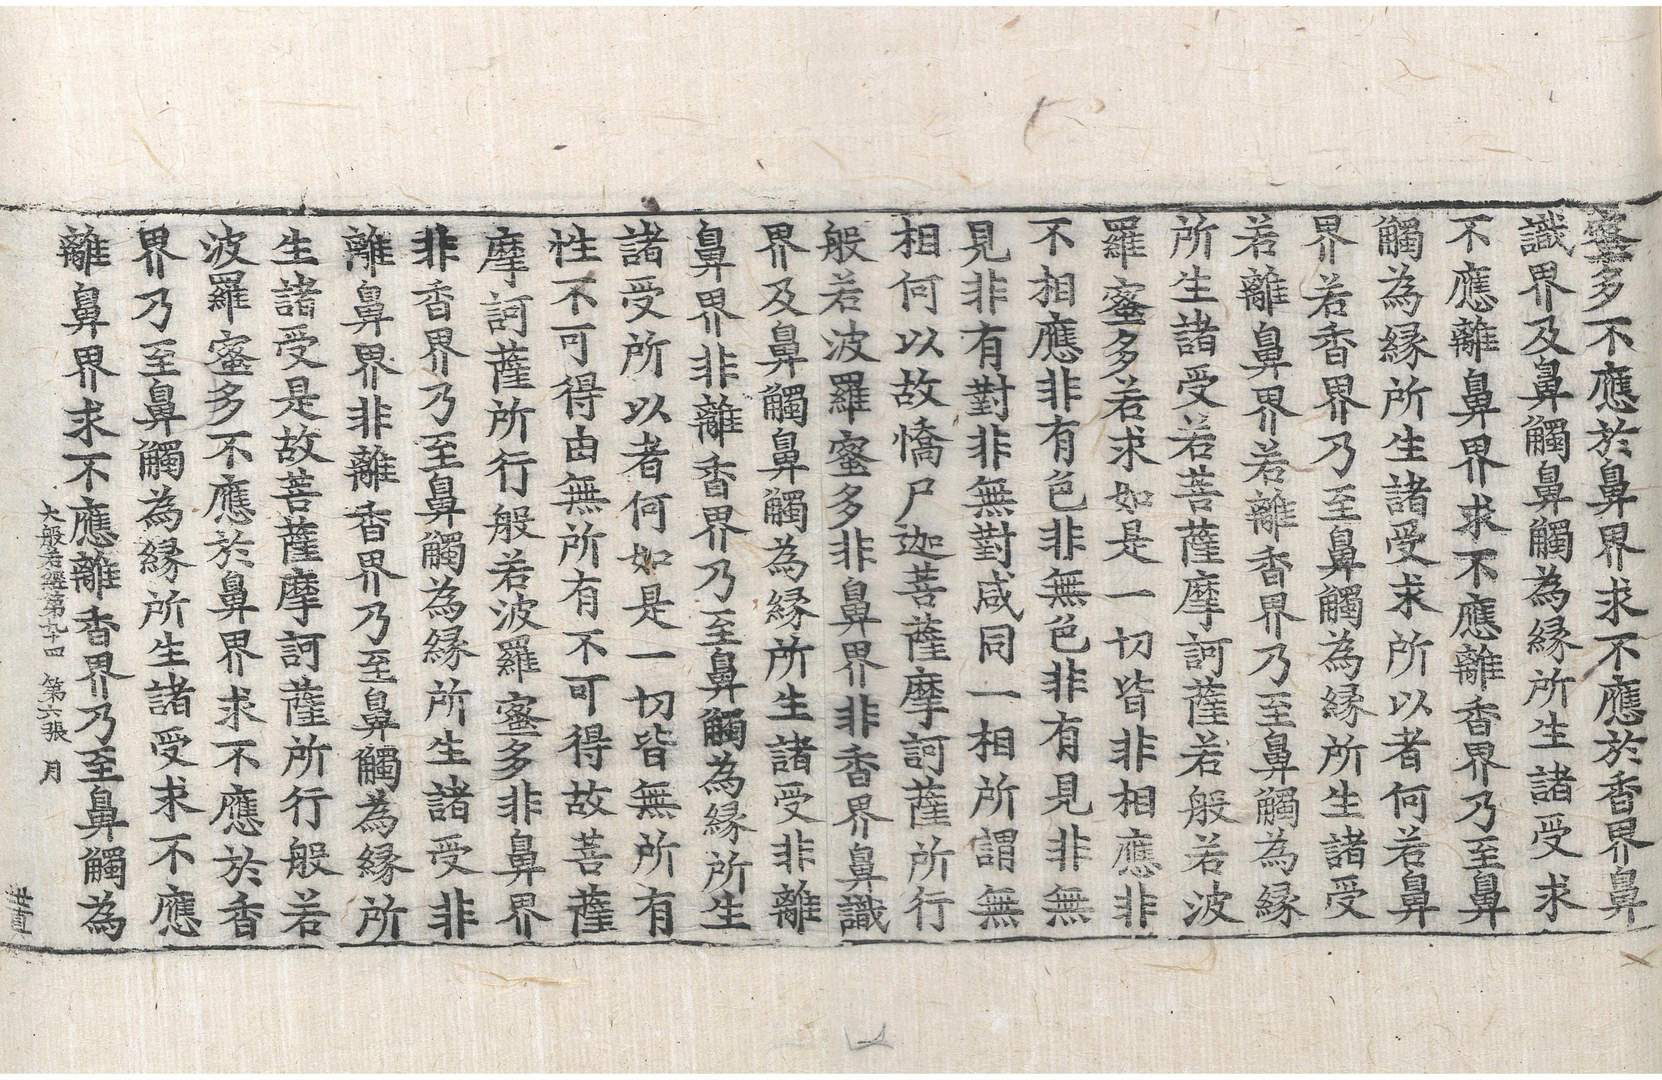 蜜多不應於鼻界求不應於香界鼻
識界及鼻觸鼻觸為緣所生諸受求
不應離鼻界求不應離香界乃至鼻
觸為緣所生諸受求所以者何若鼻
界若香界乃至鼻觸為緣所生諸受
若離鼻界若離香界乃至鼻觸為緣
所生諸受若菩薩摩訶薩若般若波
羅蜜多若求如是一切皆非相應非
不相應非有色非無色非有見非無
見非有對非無對咸同一相所謂無
相何以故憍尸迦菩薩摩訶薩所行
般若波羅蜜多非鼻界非香界鼻識
界及鼻觸鼻觸為緣所生諸受非離
鼻界非離香界乃至鼻觸為緣所生
諸受所以者何如是一切皆無所有
性不可得由無所有不可得故菩薩
摩訶薩所行般若波羅蜜多非鼻界
非香界乃至鼻觸為緣所生諸受非
離鼻界非離香界乃至鼻觸為緣所
生諸受是故菩薩摩訶薩所行般若
波羅蜜多不應於鼻界求不應於香
界乃至鼻觸為緣所生諸受求不應
離鼻界求不應離香界乃至鼻觸為
大般若經第九十四 第六張 月